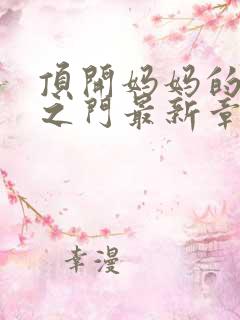 頂開妈妈的
之门最新章
李漫